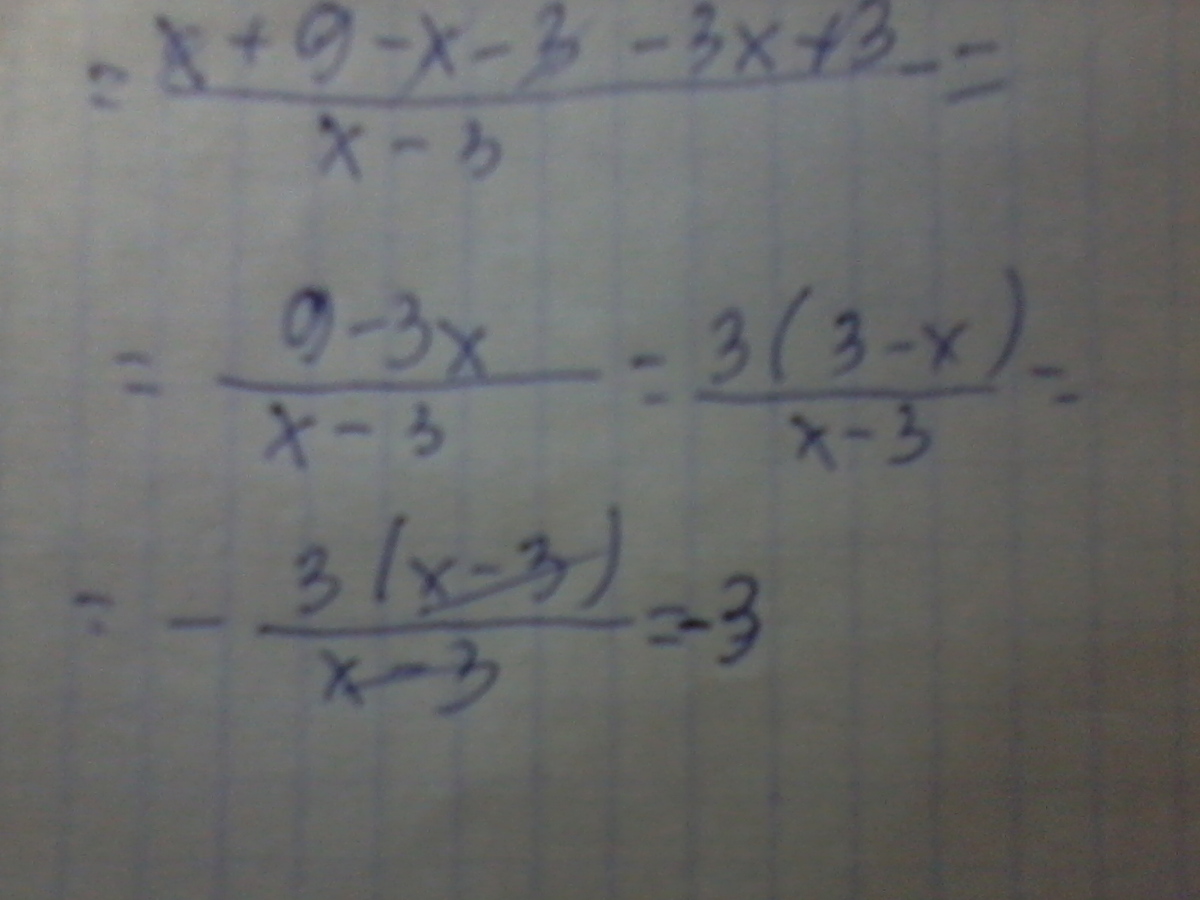 = x + 9 - x - 3 - 3x + 3 - =
x - 3
= 9 - 3x = 3 ( 3 - x ) =
x - 3 x - 3
= - 3 ( x - 3 ) = -3
x - 3